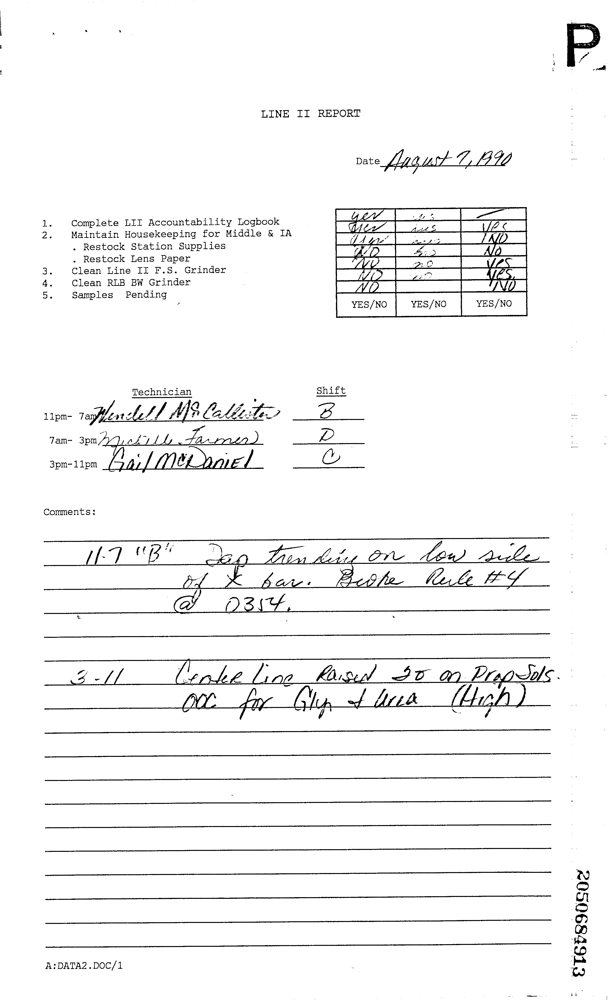 P
LINE II REPORT
Date August 7, 1990
1. Complete LII Accountability Logbook
2. Maintain Housekeeping for Middle & IA
. Restock Station Supplies
. Restock Lens Paper
3. Clean Line II F.S. Grinder
4. Clean RLB BW Grinder
5. Samples Pending
yes
yes yes
NO
NO No
NO yes
NO yes
NO NO
YES/NO YES/NO YES/NO
Technician Shift
11pm- 7am Wendell McCallister B
7am- 3pm Michelle Farmer D
3pm-11pm Gail McDaniel C
Comments:
11-7 "B" Dap trending on low side
of X bar. Broke Rule #4
@ 0354.
3-11 Center Line Raised 20 on Prop Sols.
OOC for Glyn & Urea (High)
A:DATA2.DOC/1
2050684913